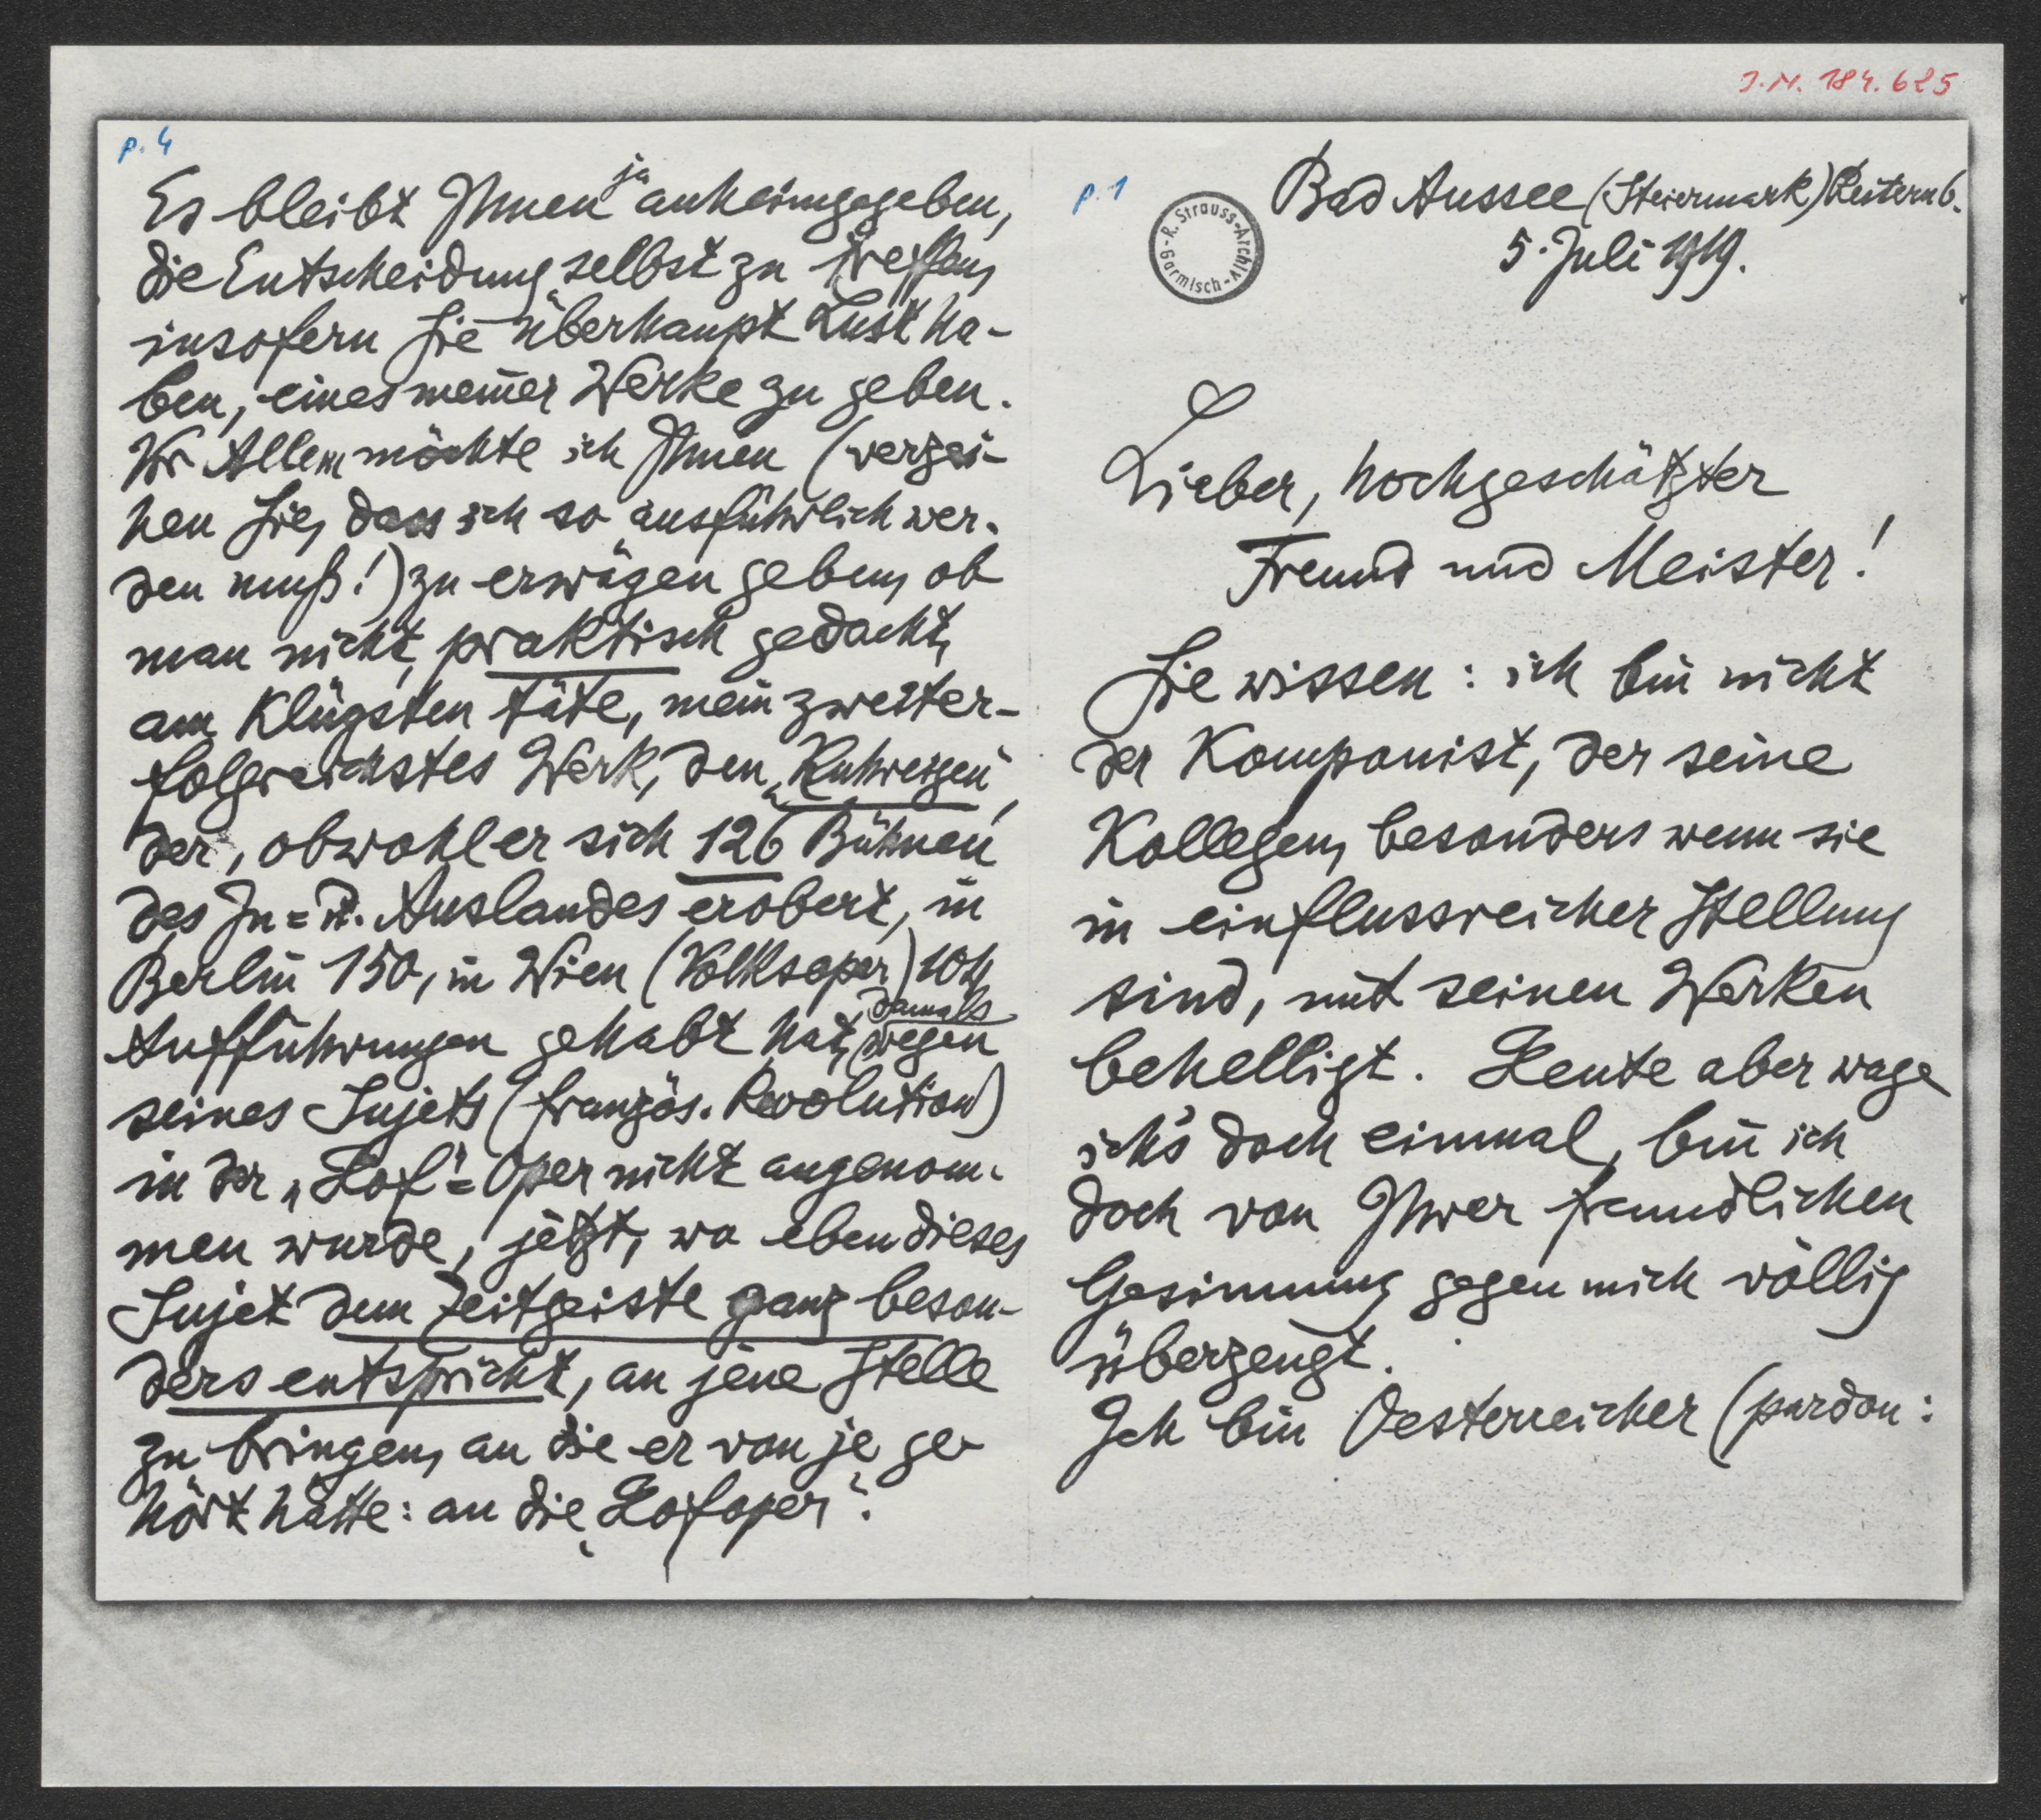 J.N. 184.625
p. 4
Es bleibt Ihnen ja anheimgegeben,
die Entscheidung selbst zu treffen,
insofern Sie überhaupt Lust ha-
ben, eines meiner Werke zu geben.
Vor Allem möchte ich Ihnen (verzei-
hen Sie, dass ich so ausführlich wer-
den muß!) zu erwägen geben, ob
man nicht, praktisch gedacht,
am Klügsten täte, mein zweiter-
folgreichstes Werk, den „Kuhreigen",
der, obwohl er sich 126 Bühnen
des In= u. Auslandes erobert, in
Berlin 150, in Wien (Volksoper) 104
Aufführungen gehabt hat, damals wegen
seines Sujets (französ. Revolution)
in der „Hof"=Oper nicht angenom-
men wurde, jetzt, wo eben dieses
Sujet dem Zeitgeiste ganz beson-
ders entspricht, an jene Stelle
zu bringen, an die er von je ge-
hört hätte: an die „Hofoper".
p. 1
R. Strauss-Archiv - Garmisch -
Bad Aussee (Steiermark) Reitern 6.
5. Juli 1919.
Lieber, hochgeschätzter
Freund und Meister!
Sie wissen: ich bin nicht
der Komponist, der seine
Kollegen, besonders wenn sie
in einflussreicher Stellung
sind, mit seinen Werken
behelligt. Heute aber wage
ich's doch einmal, bin ich
doch von Ihrer freundlichen
Gesinnung gegen mich völlig
überzeugt.
Ich bin Oesterreicher (pardon: